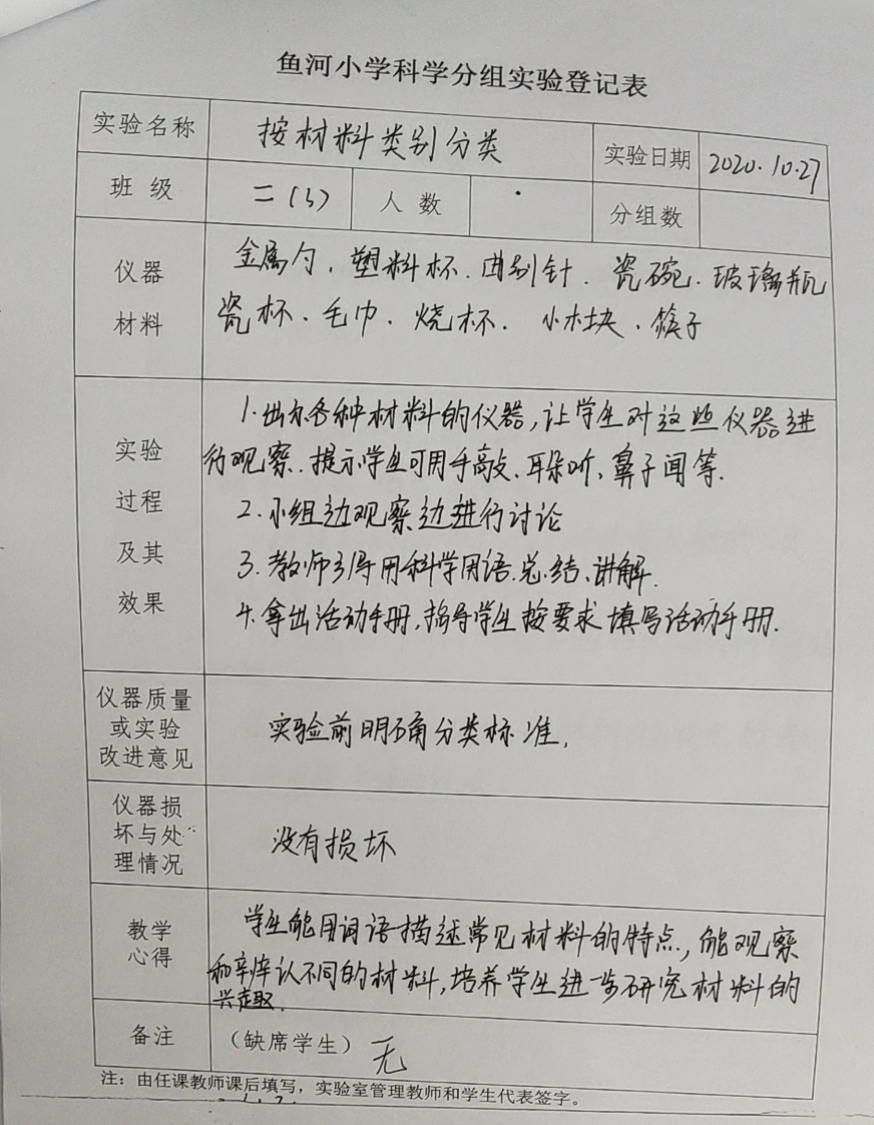 鱼河小学科学分组实验登记表
实验名称 按材料类别分类 实验日期 2020.10.27
班 级 二(3) 人 数 分组数
仪器 材料
金属勺、塑料杯、曲别针、瓷碗、玻璃瓶
瓷杯、毛巾、烧杯、小木块、筷子
实验 过程 及其 效果
1.出示各种材料的仪器,让学生对这些仪器进
行观察.提示学生可用手敲、耳朵听、鼻子闻等.
2.小组边观察边进行讨论
3.教师引导用科学用语总结、讲解.
4.拿出活动手册,指导学生按要求填写活动手册.
仪器质量
或实验
改进意见
实验前明确分类标准,
仪器损
坏与处
理情况
没有损坏
教学
心得
学生能用词语描述常见材料的特点,能观察
和辨认不同的材料,培养学生进一步研究材料的
兴趣.
备注 (缺席学生) 无
注:由任课教师课后填写,实验室管理教师和学生代表签字。